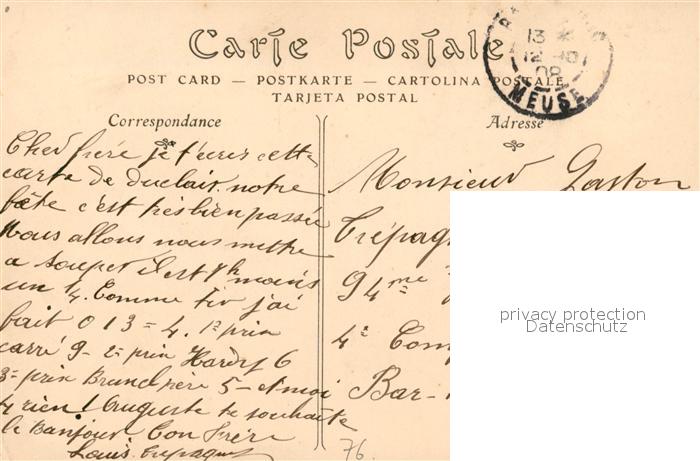 Carte Postale
POST CARD — POSTKARTE — CARTOLINA POSTALE
TARJETA POSTAL
13 *
12 - 10
08
MEUSE
Correspondance
Cher frère je t'ecris cette
carte de duclair, notre
fête c'est très bien passée
Nous allons nous mettre
a souper il est 7h moins
un ¼. Comme tir j'ai
fait 0 1 3 = 4. 1er prix
carré 9 - 2e prix Hardy 6
3e prix Brunel père 5 - et moi
4 rien! Auguste te souhaite
le Bonjour Ton frère
Louis Trépagny
Adresse
Monsieur Gaston
Trépag
94me
4e Com
Bar-
76
privacy protection
Datenschutz